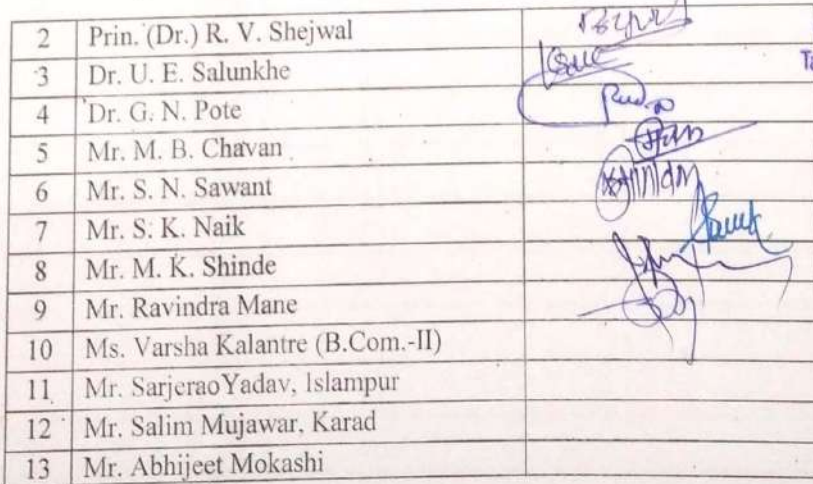 2 Prin. (Dr.) R. V. Shejwal
3 Dr. U. E. Salunkhe
4 Dr. G. N. Pote
5 Mr. M. B. Chavan
6 Mr. S. N. Sawant
7 Mr. S. K. Naik
8 Mr. M. K. Shinde
9 Mr. Ravindra Mane
10 Ms. Varsha Kalantre (B.Com.-II)
11 Mr. SarjeraoYadav, Islampur
12 Mr. Salim Mujawar, Karad
13 Mr. Abhijeet Mokashi